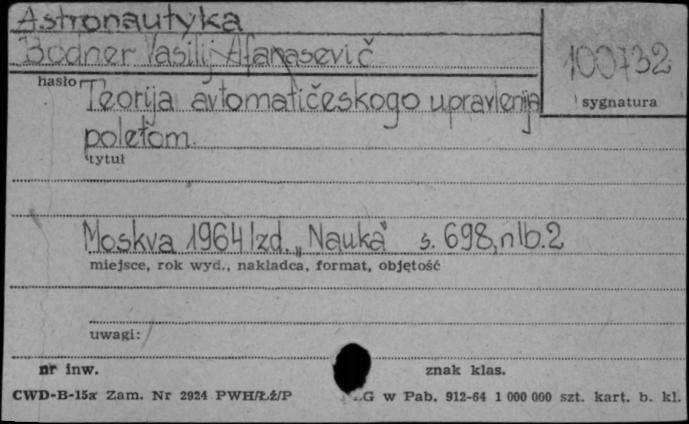 Astronautyka
Bodner Vasilij Afanasevič
100732
hasło
Teorija avtomatičeskogo upravlenija
sygnatura
poletom.
tytuł
Moskva 1964 Izd. „Nauka" s. 698, nlb. 2
miejsce, rok wyd., nakładca, format, objętość
uwagi:
nr inw.
znak klas.
CWD-B-15x Zam. Nr 2924 PWH/Łź/P
G w Pab. 912-64 1 000 000 szt. kart. b. kl.